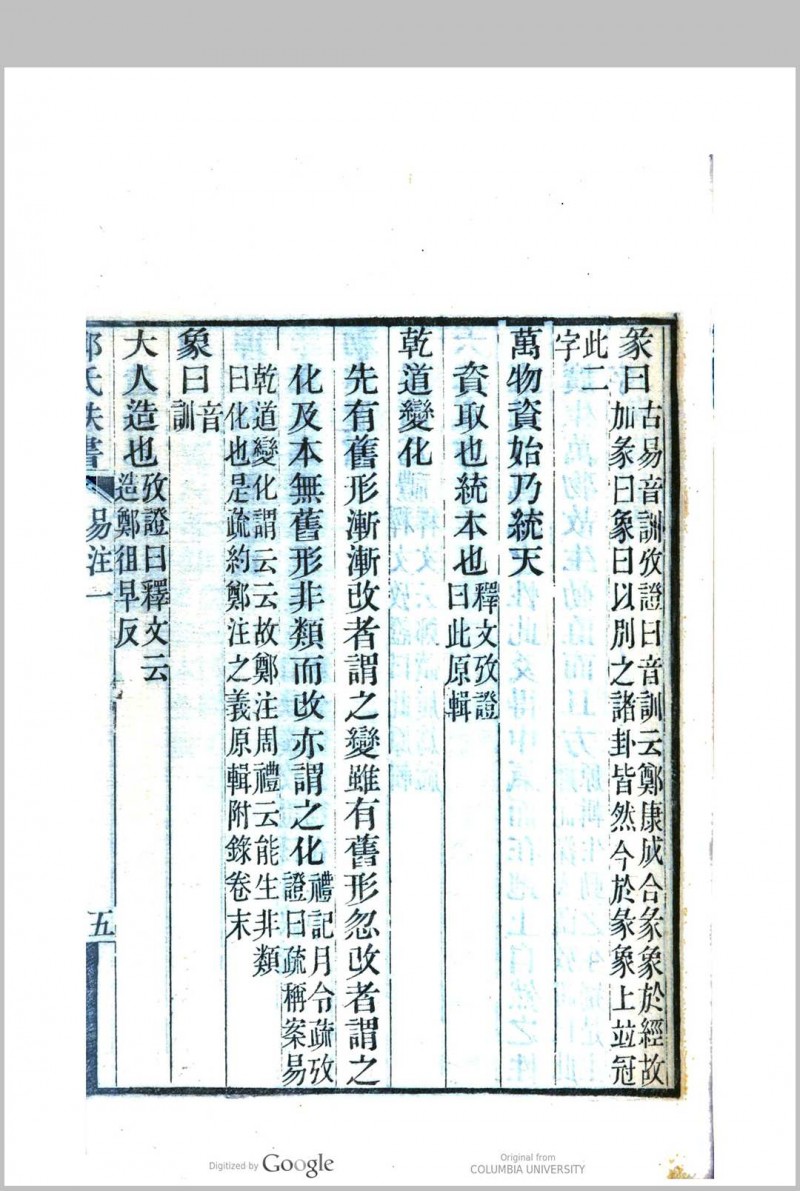 彖曰古易音訓攷證曰音訓云鄭康成合彖象於經故
加彖曰象曰以別之諸卦皆然今於彖象上竝冠
此二
字
萬物資始乃統天
資取也統本也釋文攷證
曰此原輯
乾道變化
先有舊形漸漸改者謂之變雖有舊形忽改者謂之
化及本無舊形非類而改亦謂之化禮記月令疏攷
證曰疏稱案易
乾道變化謂云云故鄭注周禮云能生非類
曰化也是疏約鄭注之義原輯附錄卷末
象曰音
訓
大人造也攷證曰釋文云
造鄭徂早反
鄭氏佚書 易注一 五
Digitized by Google
Original from
COLUMBIA UNIVERSITY